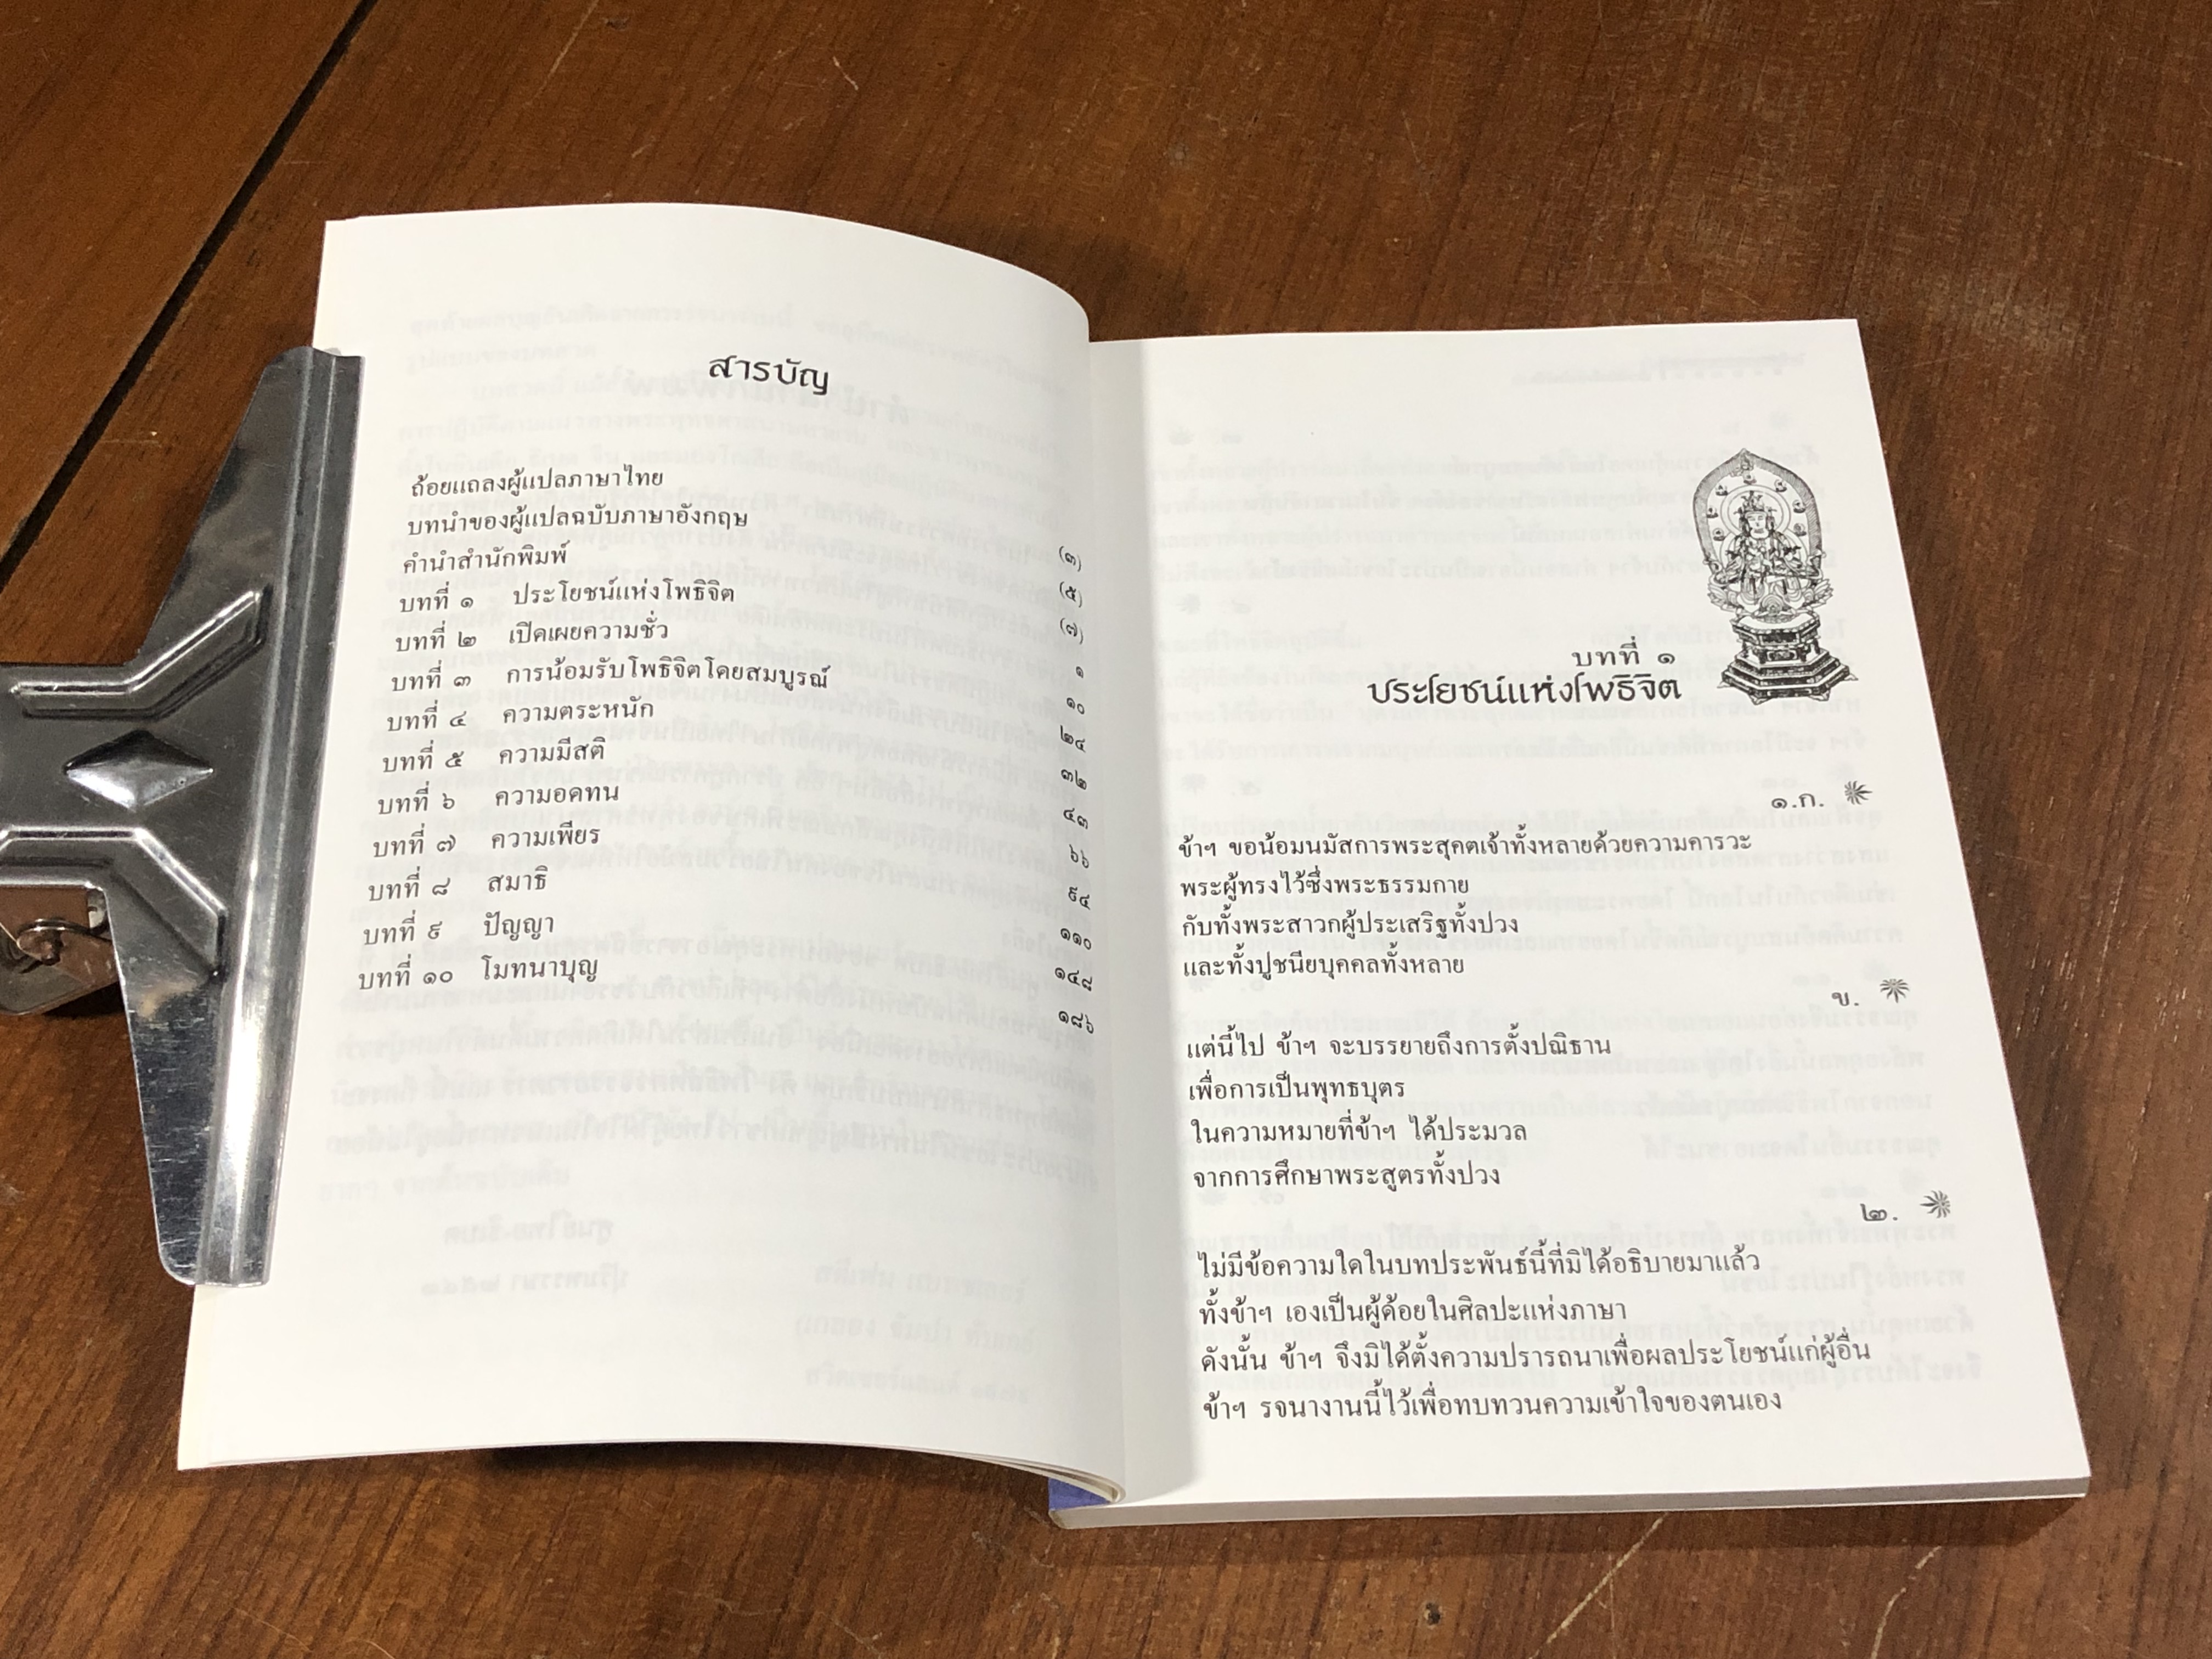 สารบัญ
ถ้อยแถลงผู้แปลภาษาไทย (๓)
บทนำของผู้แปลฉบับภาษาอังกฤษ (๕)
คำนำสำนักพิมพ์ (๗)
บทที่ ๑ ประโยชน์แห่งโพธิจิต ๑
บทที่ ๒ เปิดเผยความชั่ว ๑๐
บทที่ ๓ การน้อมรับโพธิจิตโดยสมบูรณ์ ๒๔
บทที่ ๔ ความตระหนัก ๓๒
บทที่ ๕ ความมีสติ ๔๓
บทที่ ๖ ความอดทน ๖๖
บทที่ ๗ ความเพียร ๙๔
บทที่ ๘ สมาธิ ๑๑๐
บทที่ ๙ ปัญญา ๑๔๙
บทที่ ๑๐ โมทนาบุญ ๑๘๖
บทที่ ๑
ประโยชน์แห่งโพธิจิต
๑.ก.
ข้าฯ ขอน้อมนมัสการพระสุคตเจ้าทั้งหลายด้วยความคารวะ
พระผู้ทรงไว้ซึ่งพระธรรมกาย
กับทั้งพระสาวกผู้ประเสริฐทั้งปวง
และทั้งปูชนียบุคคลทั้งหลาย
ข.
แต่นี้ไป ข้าฯ จะบรรยายถึงการตั้งปณิธาน
เพื่อการเป็นพุทธบุตร
ในความหมายที่ข้าฯ ได้ประมวล
จากการศึกษาพระสูตรทั้งปวง
๒.
ไม่มีข้อความใดในบทประพันธ์นี้ที่มิได้อธิบายมาแล้ว
ทั้งข้าฯ เองเป็นผู้ด้อยในศิลปะแห่งภาษา
ดังนั้น ข้าฯ จึงมิได้ตั้งความปรารถนาเพื่อผลประโยชน์แก่ผู้อื่น
ข้าฯ รจนางานนี้ไว้เพื่อทบทวนความเข้าใจของตนเอง